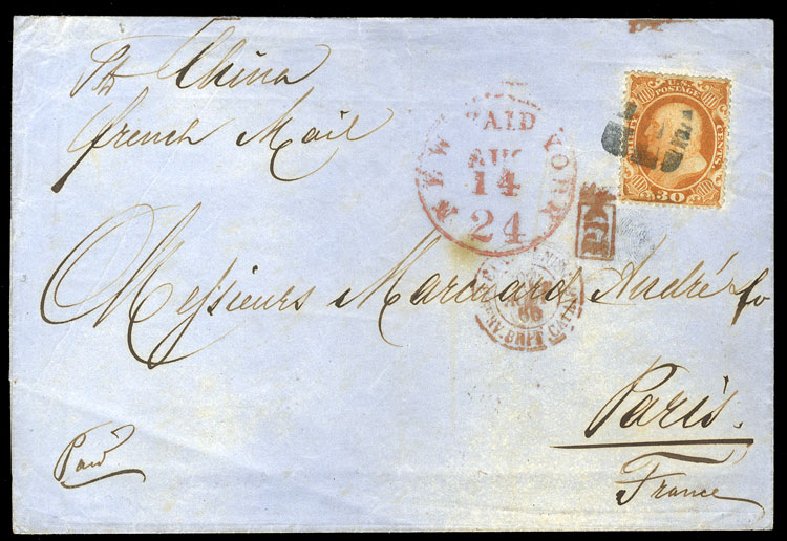 Pr China
French Mail
U.S.
POSTAGE
THIRTY CENTS
30
NEW YORK
PAID
AUG
14
24
P.D.
Messieurs Marcuard André & Co
SERV. BRIT. CALAIS
66
Paris.
France
Paid